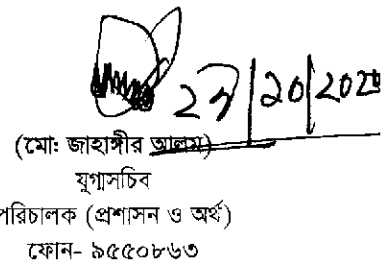 (মো: জাহাঙ্গীর আলম)
যুগ্মসচিব
পরিচালক (প্রশাসন ও অর্থ)
ফোন- ৯৫৫০৮৬৩